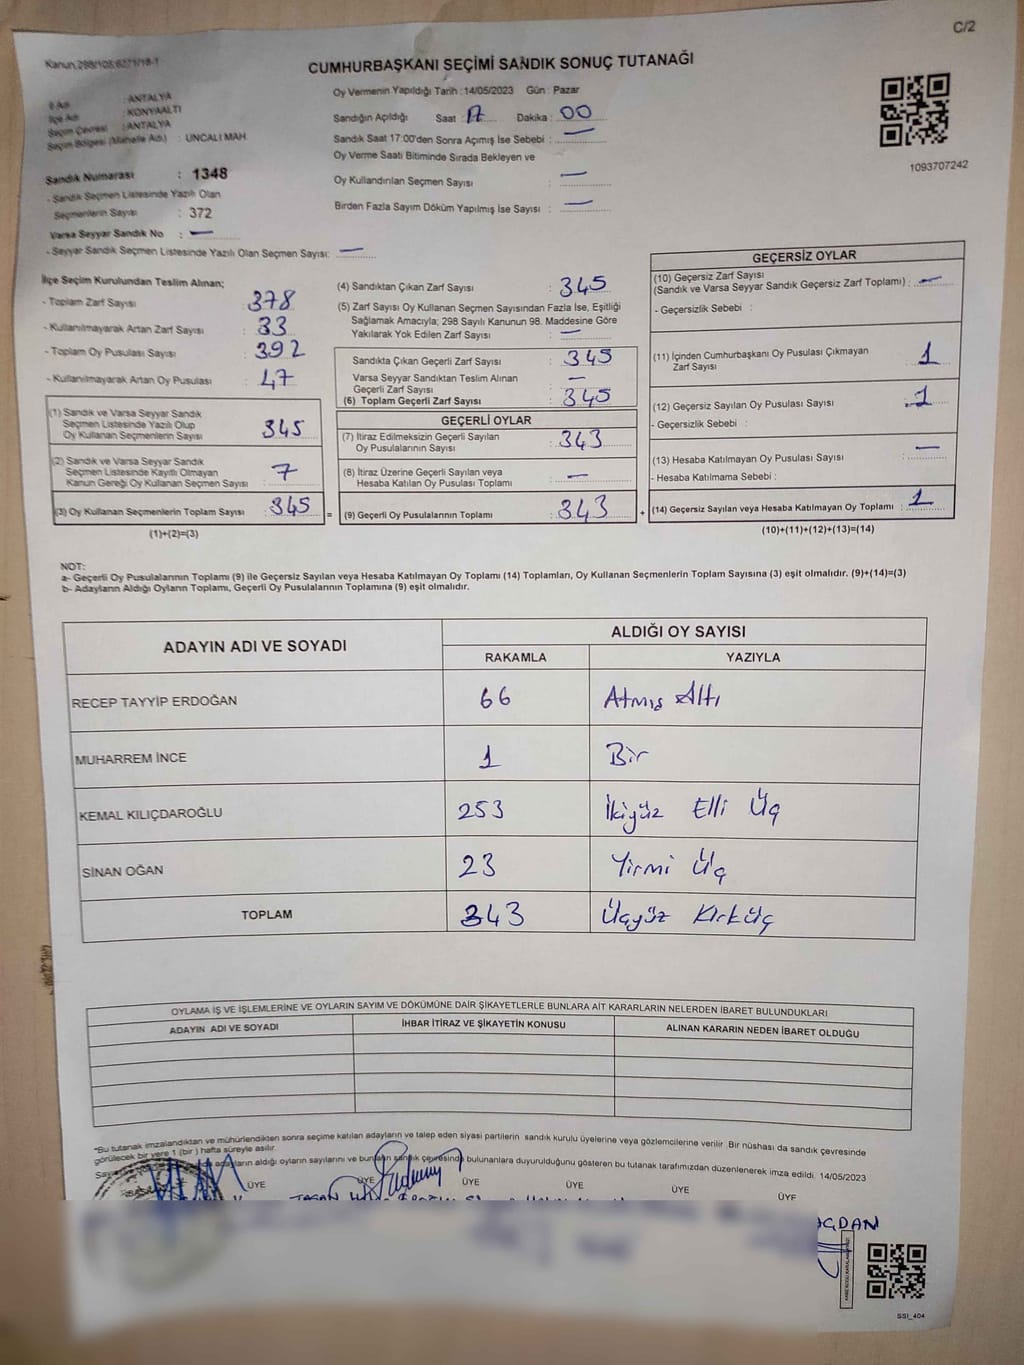 C/2
Kanun,298/105;6271/18-1
CUMHURBAŞKANI SEÇİMİ SANDIK SONUÇ TUTANAĞI
İl Adı : ANTALYA
İlçe Adı : KONYAALTI
Seçim Çevresi : ANTALYA
Seçim Bölgesi (Mahalle Adı) : UNCALI MAH
Sandık Numarası : 1348
- Sandık Seçmen Listesinde Yazılı Olan
Seçmenlerin Sayısı : 372
Varsa Seyyar Sandık No : —
- Seyyar Sandık Seçmen Listesinde Yazılı Olan Seçmen Sayısı: —
Oy Vermenin Yapıldığı Tarih : 14/05/2023 Gün : Pazar
Sandığın Açıldığı Saat : 17 Dakika : 00
Sandık Saat 17:00'den Sonra Açımış İse Sebebi : —
Oy Verme Saati Bitiminde Sırada Bekleyen ve
Oy Kullandırılan Seçmen Sayısı : —
Birden Fazla Sayım Döküm Yapılmış İse Sayısı : —
1093707242
İlçe Seçim Kurulundan Teslim Alınan;
- Toplam Zarf Sayısı : 378
- Kullanılmayarak Artan Zarf Sayısı : 33
- Toplam Oy Pusulası Sayısı : 392
- Kullanılmayarak Artan Oy Pusulası : 47
(1) Sandık ve Varsa Seyyar Sandık
Seçmen Listesinde Yazılı Olup
Oy Kullanan Seçmenlerin Sayısı : 345
(2) Sandık ve Varsa Seyyar Sandık
Seçmen Listesinde Kayıtlı Olmayan
Kanun Gereği Oy Kullanan Seçmen Sayısı : 7
(3) Oy Kullanan Seçmenlerin Toplam Sayısı : 345
(1)+(2)=(3)
(4) Sandıktan Çıkan Zarf Sayısı : 345
(5) Zarf Sayısı Oy Kullanan Seçmen Sayısından Fazla İse, Eşitliği
Sağlamak Amacıyla; 298 Sayılı Kanunun 98. Maddesine Göre
Yakılarak Yok Edilen Zarf Sayısı : —
Sandıkta Çıkan Geçerli Zarf Sayısı : 345
Varsa Seyyar Sandıktan Teslim Alınan
Geçerli Zarf Sayısı : —
(6) Toplam Geçerli Zarf Sayısı : 345
GEÇERLİ OYLAR
(7) İtiraz Edilmeksizin Geçerli Sayılan
Oy Pusulalarının Sayısı : 343
(8) İtiraz Üzerine Geçerli Sayılan veya
Hesaba Katılan Oy Pusulası Toplamı : —
= (9) Geçerli Oy Pusulalarının Toplamı : 343 +
GEÇERSİZ OYLAR
(10) Geçersiz Zarf Sayısı
(Sandık ve Varsa Seyyar Sandık Geçersiz Zarf Toplamı) : —
- Geçersizlik Sebebi :
(11) İçinden Cumhurbaşkanı Oy Pusulası Çıkmayan
Zarf Sayısı : 1
(12) Geçersiz Sayılan Oy Pusulası Sayısı : 1
- Geçersizlik Sebebi :
(13) Hesaba Katılmayan Oy Pusulası Sayısı : —
- Hesaba Katılmama Sebebi :
(14) Geçersiz Sayılan veya Hesaba Katılmayan Oy Toplamı : 1
(10)+(11)+(12)+(13)=(14)
NOT:
a- Geçerli Oy Pusulalarının Toplamı (9) ile Geçersiz Sayılan veya Hesaba Katılmayan Oy Toplamı (14) Toplamları, Oy Kullanan Seçmenlerin Toplam Sayısına (3) eşit olmalıdır. (9)+(14)=(3)
b- Adayların Aldığı Oyların Toplamı, Geçerli Oy Pusulalarının Toplamına (9) eşit olmalıdır.
ADAYIN ADI VE SOYADI
ALDIĞI OY SAYISI
RAKAMLA YAZIYLA
RECEP TAYYİP ERDOĞAN 66 Atmış Altı
MUHARREM İNCE 1 Bir
KEMAL KILIÇDAROĞLU 253 İkiyüz Elli Üç
SİNAN OĞAN 23 Yirmi Üç
TOPLAM 343 Üçyüz Kırküç
OYLAMA İŞ VE İŞLEMLERİNE VE OYLARIN SAYIM VE DÖKÜMÜNE DAİR ŞİKAYETLERLE BUNLARA AİT KARARLARIN NELERDEN İBARET BULUNDUKLARI
ADAYIN ADI VE SOYADI İHBAR İTİRAZ VE ŞİKAYETİN KONUSU ALINAN KARARIN NEDEN İBARET OLDUĞU
*Bu tutanak imzalandıktan ve mühürlendikten sonra seçime katılan adayların ve talep eden siyasi partilerin sandık kurulu üyelerine veya gözlemcilerine verilir. Bir nüshası da sandık çevresinde
görülecek bir yere 1 (bir) hafta süreyle asılır.
adayların aldığı oyların sayılarını ve bunların sandık çevresinde bulunanlara duyurulduğunu gösteren bu tutanak tarafımızdan düzenlenerek imza edildi. 14/05/2023
ÜYE ÜYE ÜYE ÜYE ÜYE ÜYE
SSI_404